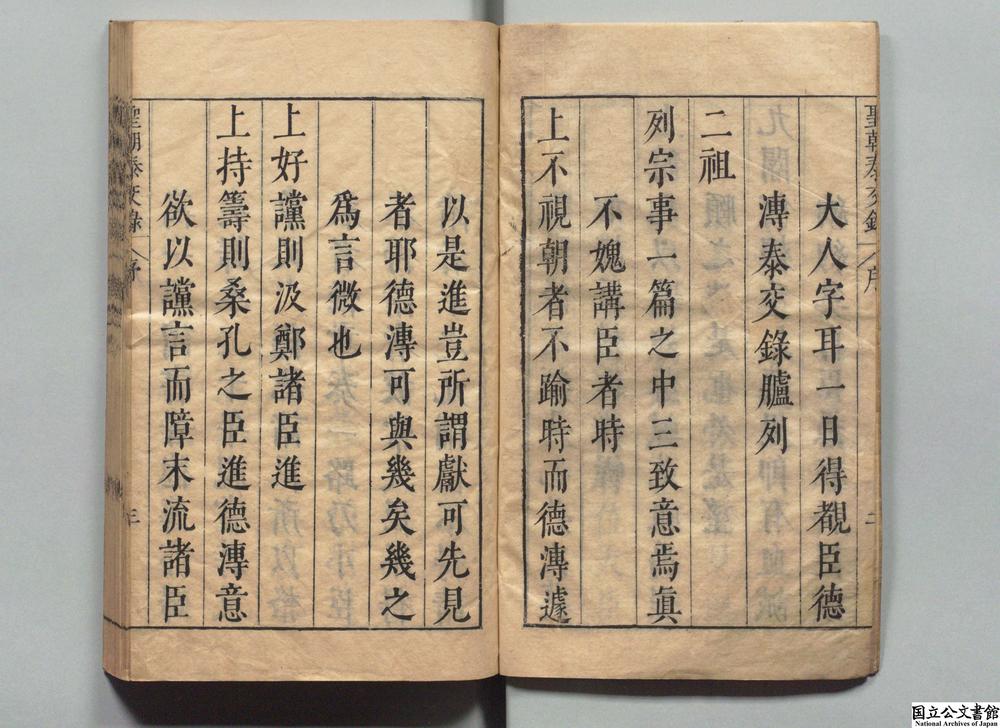 聖朝泰交錄 序 二
大人字耳一日得覩臣德
漙泰交錄臚列
二祖
列宗事一篇之中三致意焉眞
不媿講臣者時
上不視朝者不踰時而德漙遽
以是進豈所謂獻可先見
者耶德漙可與幾矣幾之
爲言微也
上好讜則汲鄭諸臣進
上持籌則桑孔之臣進德漙意
欲以讜言而障末流諸臣
聖朝泰交錄 序 三
国立公文書館
National Archives of Japan